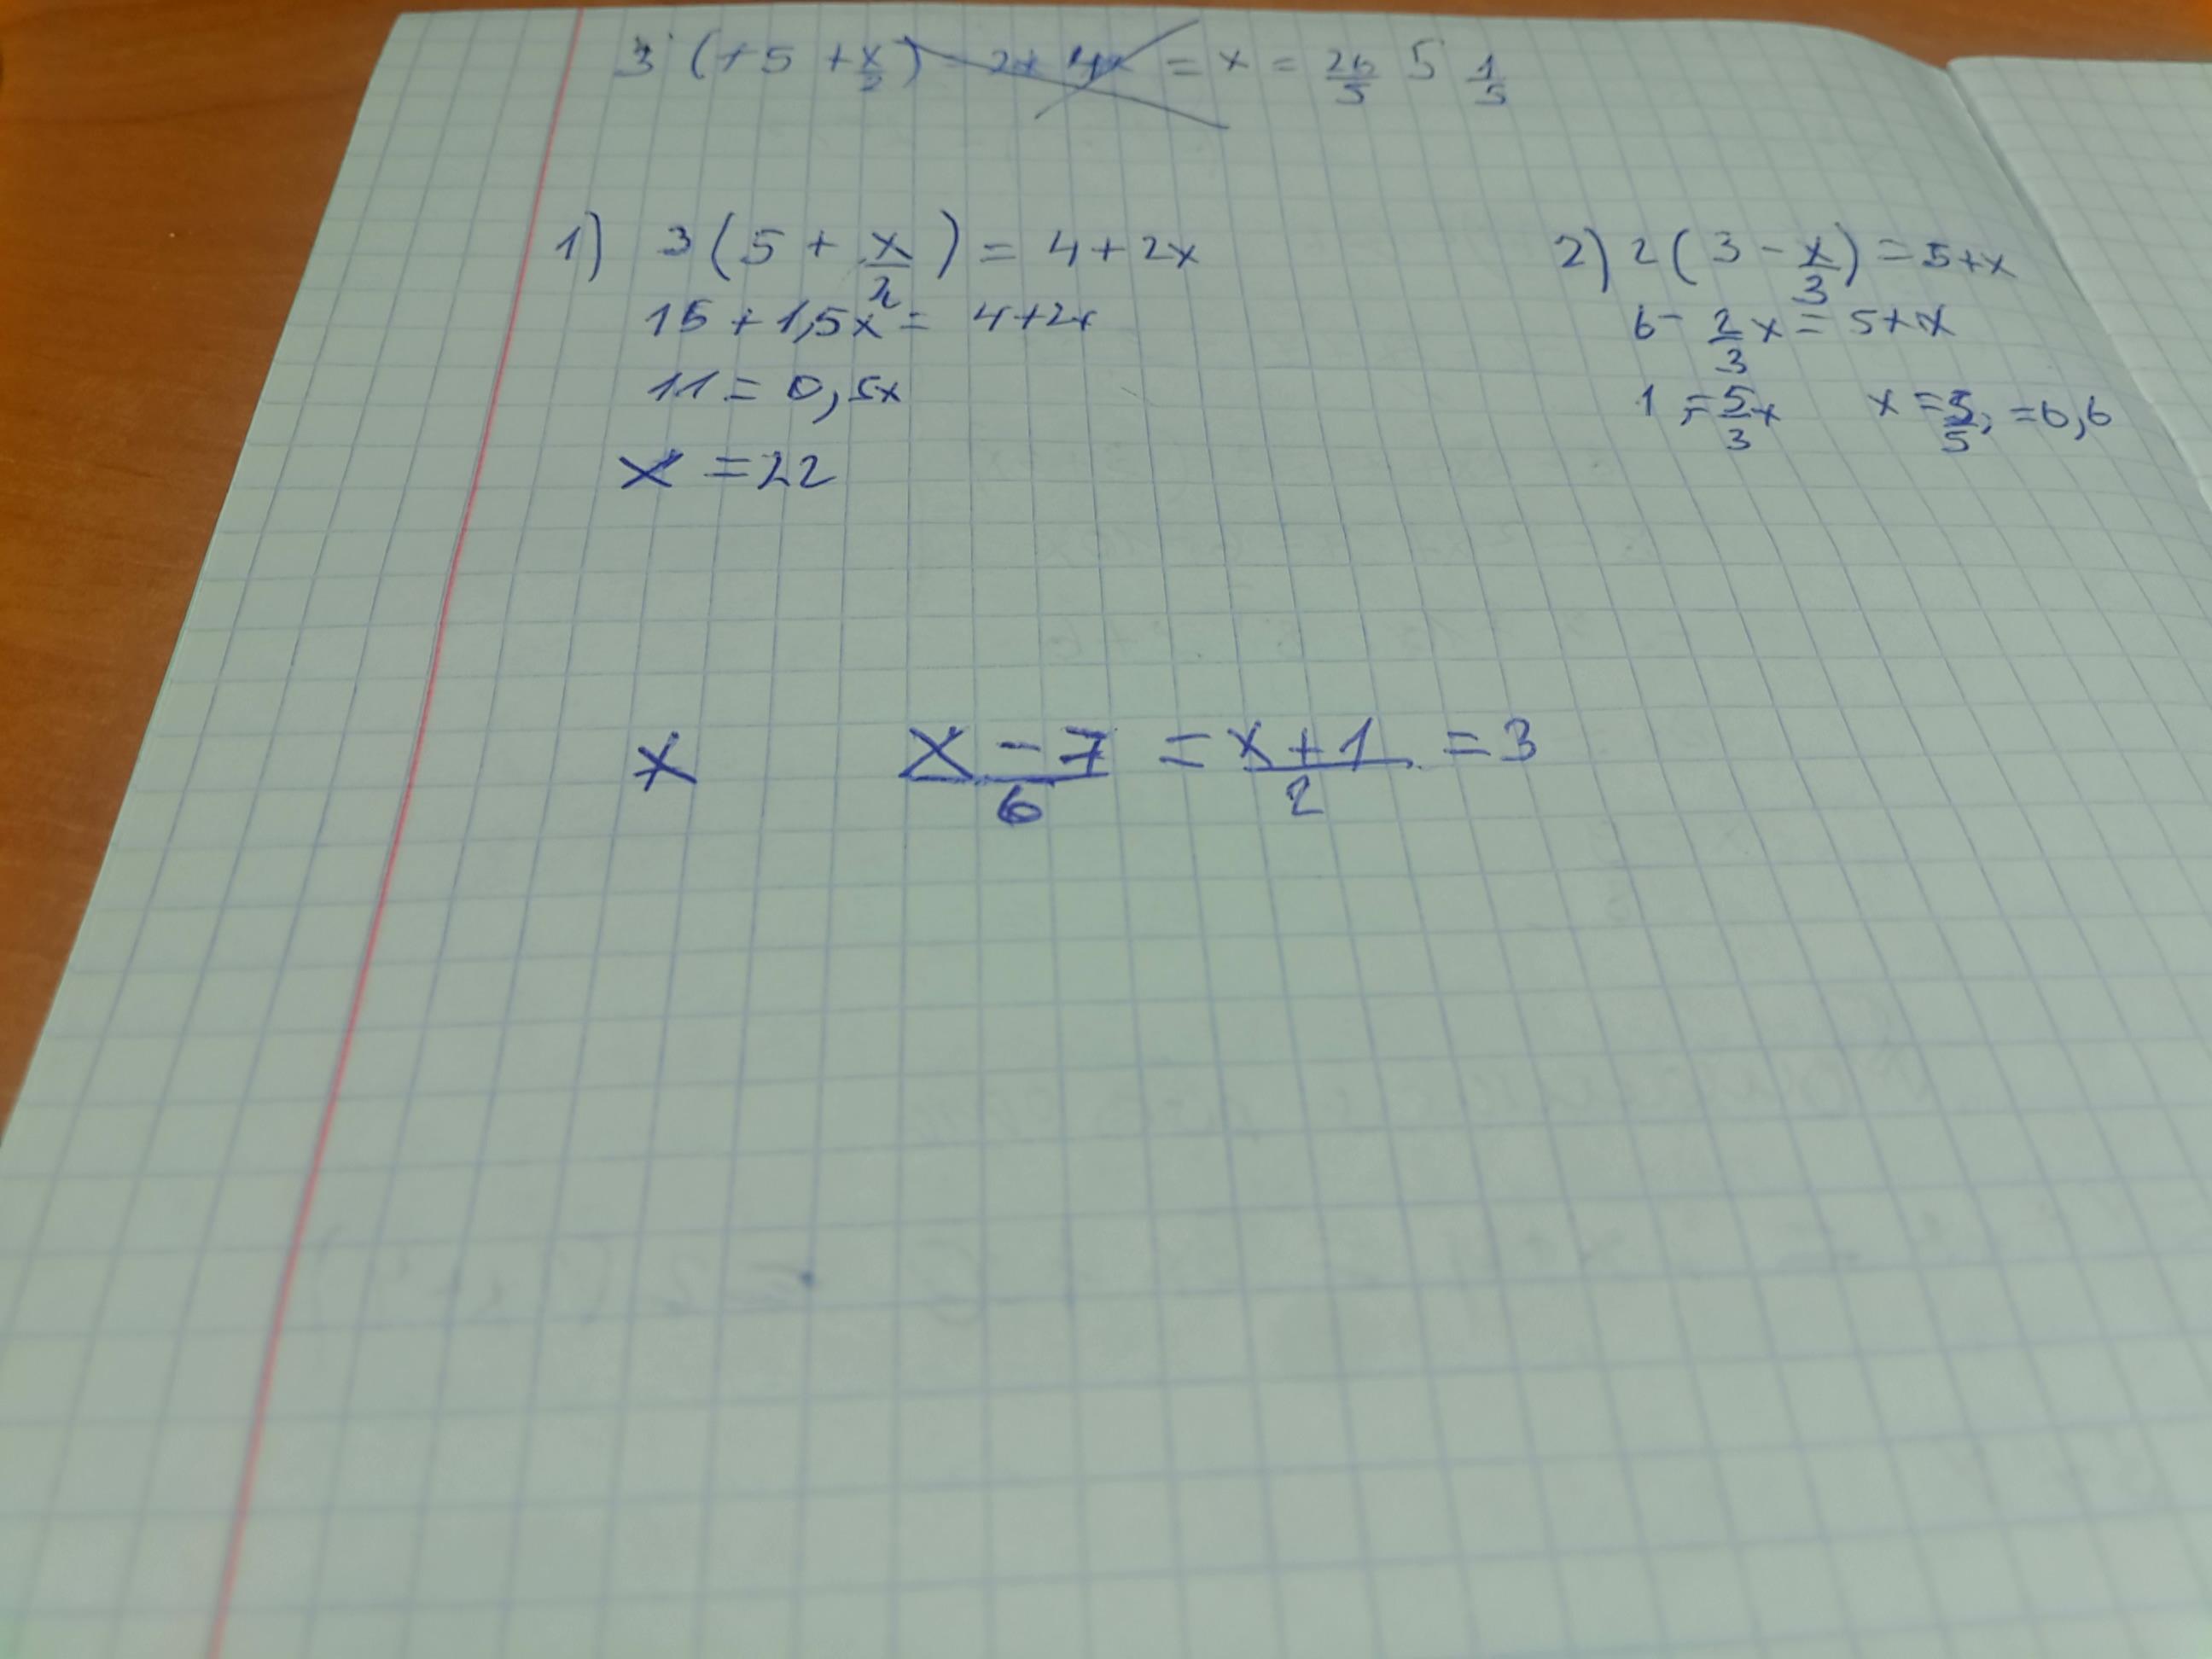 3 (+5 + x/2) = x = 26/5 5 1/5
1) 3(5 + x/2) = 4+2x
15 + 1,5x = 4+2x
11 = 0,5x
x = 22
2) 2(3 - x/3) = 5+x
6 - 2/3 x = 5+x
1 = 5/3 x x = 3/5 = 0,6
x x-7/6 = x+1/2 = 3